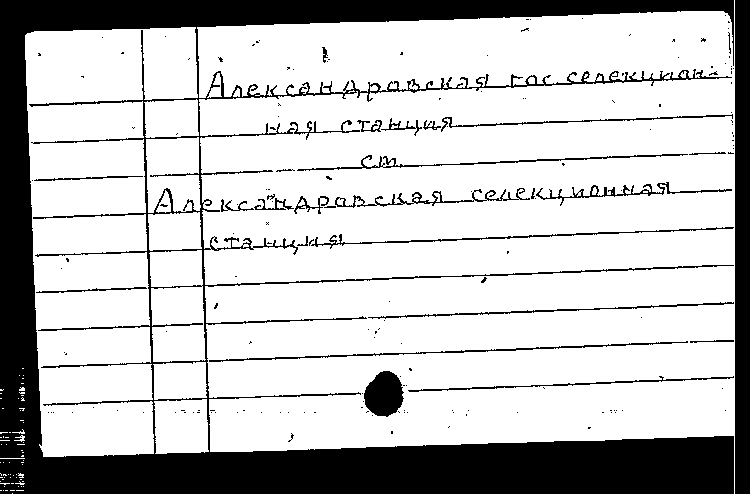 Александровская гос селекцион-
ная станция
см.
Александровская селекционная
станция